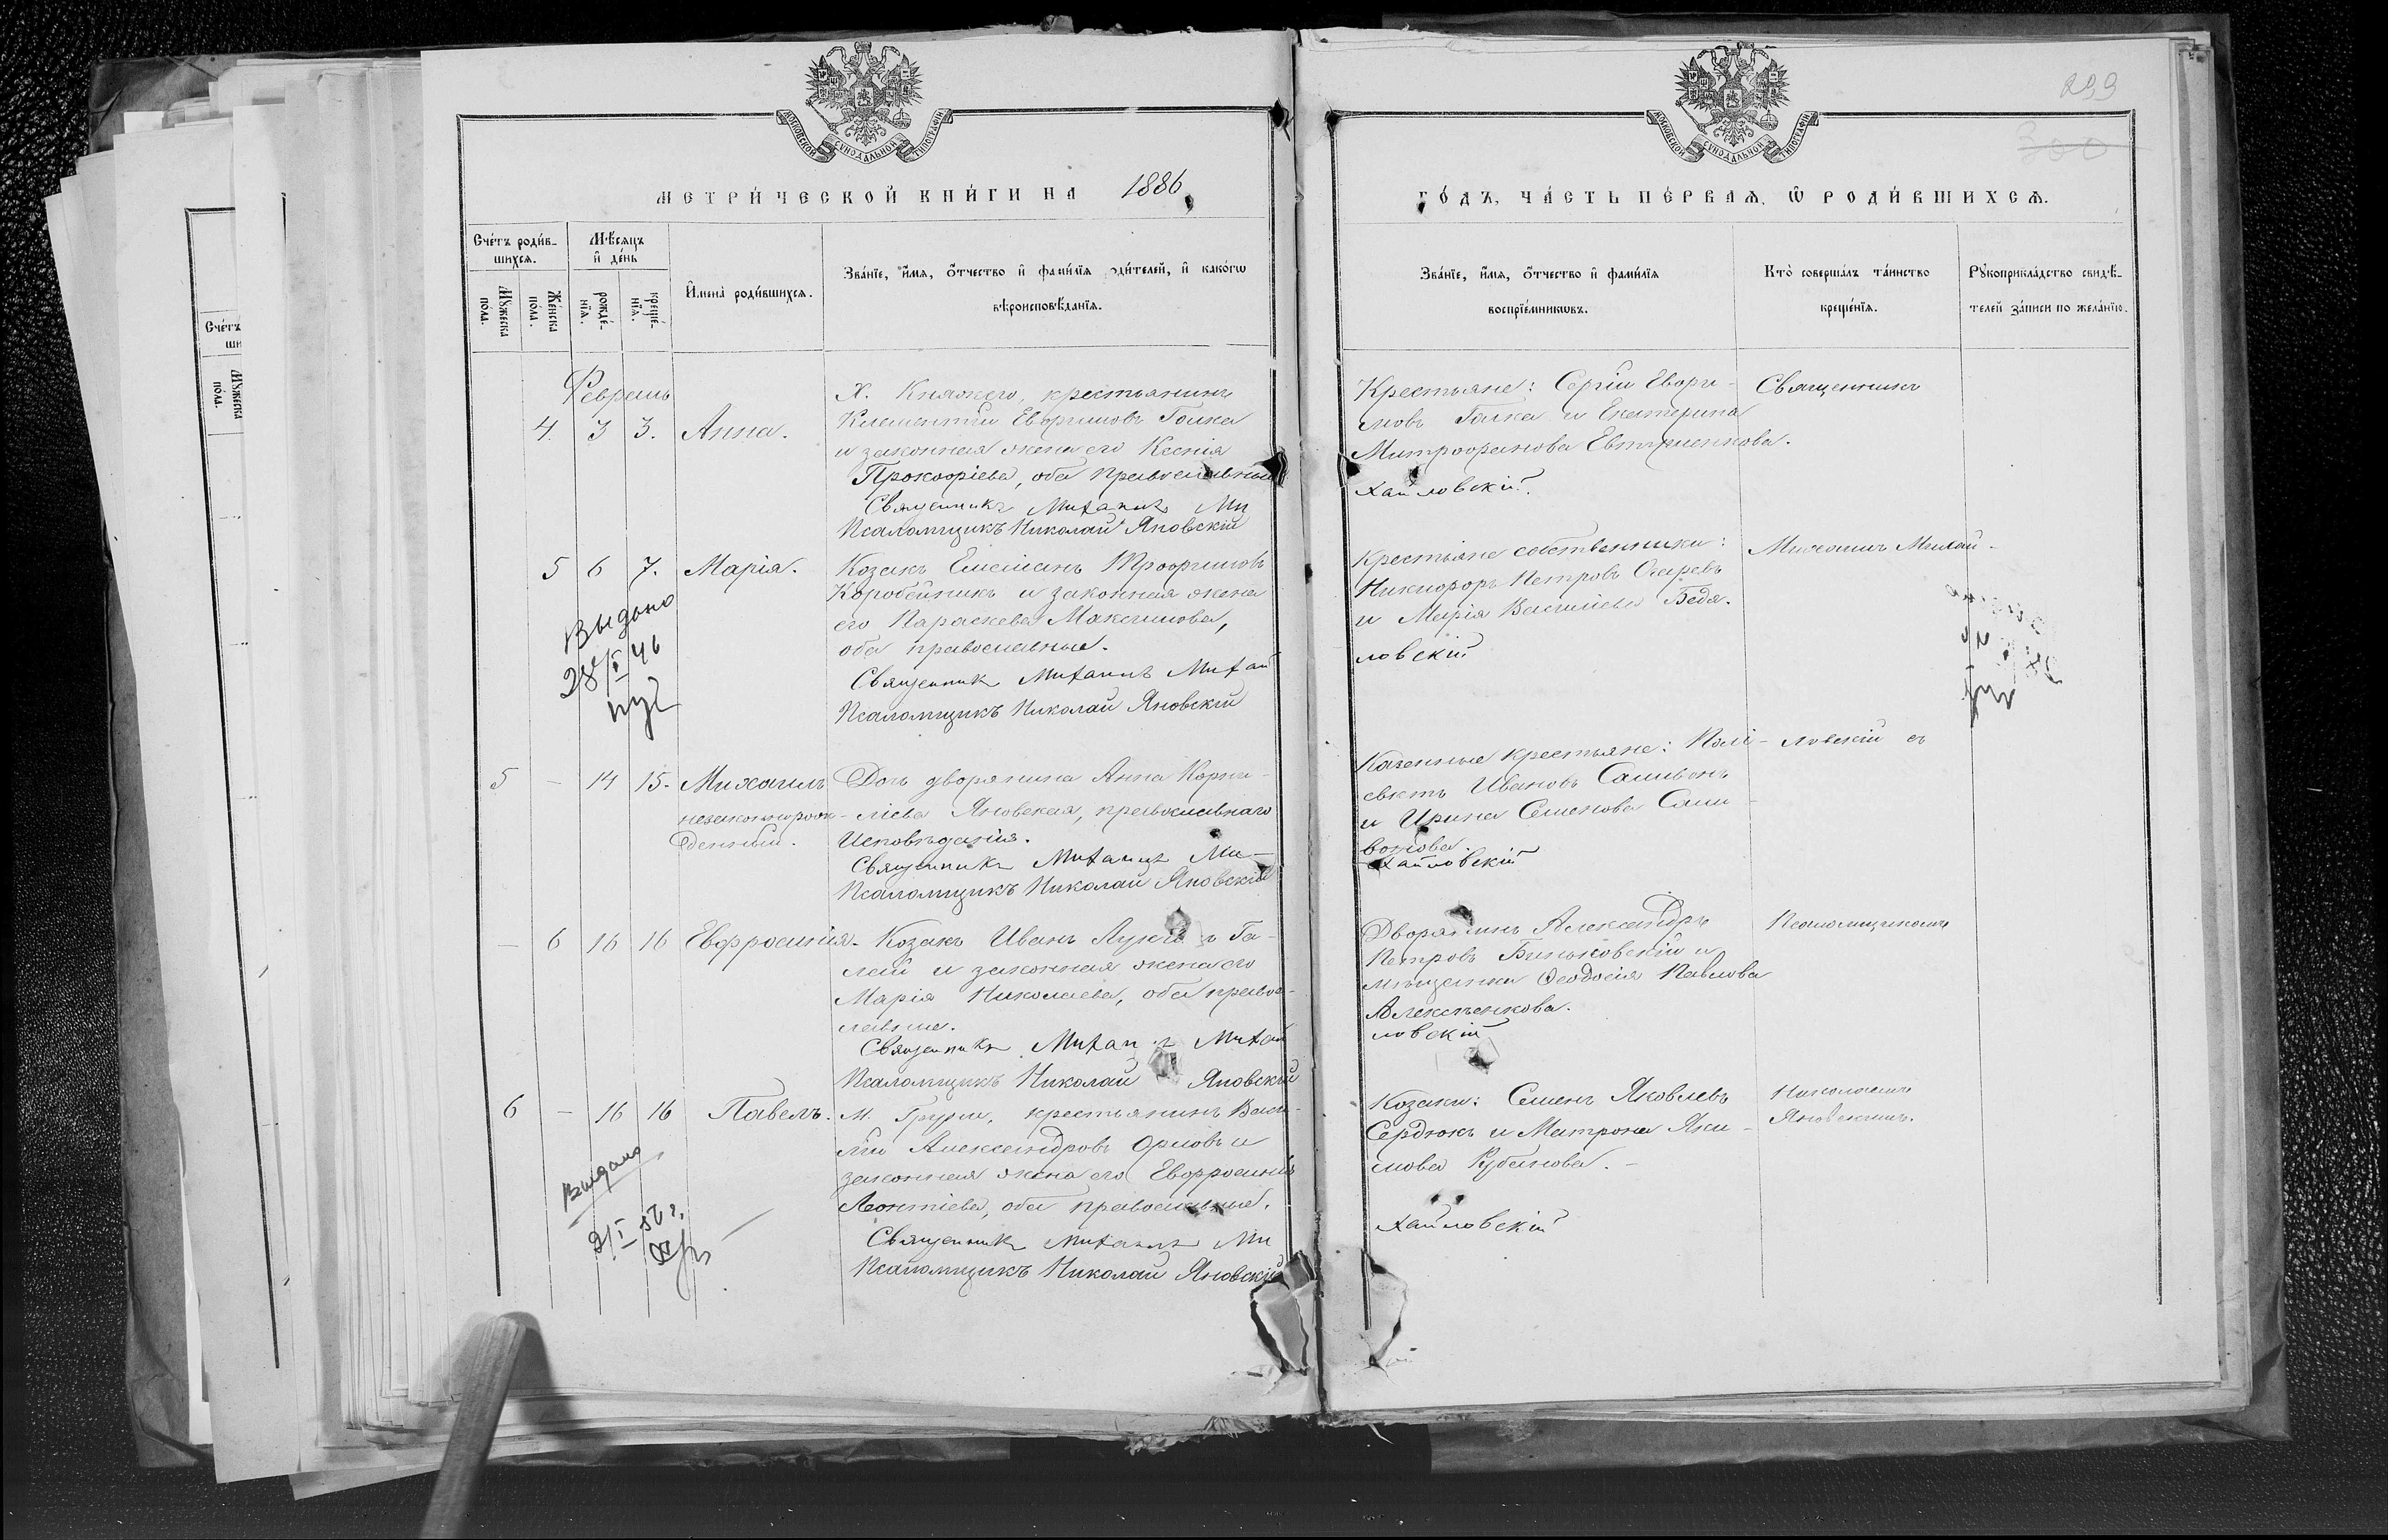 299
300
МОСКОВСКОЙ СУНОДАЛЬНОЙ ТИПОГРАФІИ
МОСКОВСКОЙ СУНОДАЛЬНОЙ ТИПОГРАФІИ
МЕТРИ́ЧЕСКОЙ КНИ́ГИ НА 1886
ГО́ДЪ, ЧА́СТЬ ПЕ́РВАѦ, Ѡ РОДИ́ВШИХСѦ.
Счетъ роди́в-
шихсѧ.
Мѣ́сѧцъ
и де́нь
Мꙋжеска
пола.
Же́нска
пола.
рожде́-
нїѧ.
креще́-
нїѧ.
Имена̀ роди́вшихсѧ.
Зва́нїе, и́мѧ, ѻ́тчество и фами́лїѧ роди́телей, и како́гѡ
вѣроисповѣ́данїѧ.
Зва́нїе, и́мѧ, ѻ́тчество и фами́лїѧ
воспрїе́мникѡвъ.
Кто̀ соверша́лъ та́инство
креще́нїѧ.
Рꙋкоприкла́дство свидѣ́-
телей за́писи по жела́нїю.
Счетъ
ши
Мꙋжеска
пола.
Февраль
4. 3 3. Анна.
Х. Княжего, крестьянинъ
Климентій Евфимовъ Галка
и законная жена его Ксенія
Прокофіева, оба православные
Священникъ Михаилъ Ми
Псаломщикъ Николай Яновскій
Крестьяне: Сергій Евфи-
мовъ Галка и Екатерина
Митрофанова Евтушенкова.
хайловскій.
Священникъ
5 6 7. Марія.
Козакъ Емеліанъ Трофимовъ
Коробейникъ и законная жена
его Параскева Максимова,
оба православные.
Священник Михаилъ Михай
Псаломщикъ Николай Яновскій
Выдано
28/I 46
Крестьяне собственники:
Никифоръ Петровъ
и Марія Васильева Беда.
ловскій
Михаилъ Михай-
5 - 14 15. Михаилъ
незаконнорож-
денный.
Дочь дворянина Анна Корни-
ліева Яновская, православнаго
Исповѣданія.
Священникъ Михаилъ Ми-
Псаломщикъ Николай Яновскій
Казенные крестьяне: Полі-
евктъ Ивановъ Саливонъ
и Ирина Семенова Сали-
вонова.
хайловскій
ловскій съ
- 6 16 16 Евфросинія.
Козакъ Иванъ Га-
лай и законная жена его
Марія Николаева, оба правос-
лавные.
Священникъ Михаилъ Михай
Псаломщикъ Николай Яновскій
Дворянинъ Александръ
Петровъ и
мѣщанка Феодосія Павлова
Алексѣенкова.
ловскій
Псаломщикомъ
6 - 16 16 Павелъ.
М. Груни, крестьянинъ Васи-
лій Александровъ Орловъ и
законная жена его Евфросинія
Леонтіева, оба православные.
Священник Михаилъ Ми
Псаломщикъ Николай Яновскій
Выдано
2/I 56 г.
Козаки: Семенъ Яковлевъ
Сердюкъ и Матрона Яки-
мова Рубанова.
хайловскій
Николаемъ
Яновскимъ.